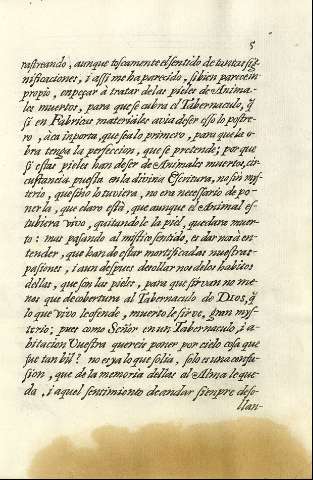 5
rastreando, aunque toscamente el sentido de tantas sig-
nificaciones, i assi me ha parecido, si bien parece im-
propio, enpeçar à tratar de las pieles de Anima-
les muertos, para que se cubra el Tabernaculo, q̃
si en Fabricas materiales avia de ser esso lo postre-
ro, acà inporta, que sea lo primero, para que la o-
bra tenga la perfeccion, que se pretende; por que
si estas pieles han de ser de Animales muertos, cir-
cunstancia puesta en la divina Escritura, no sin mys-
terio, que si no lo tuviera, no era necessario de po-
nerla, que claro està, que aunque el Animal es-
tubiera vivo, quitandole la piel, quedara muer-
to: mas pasando al mistico sentido, es darnos à en-
tender, que han de estar mortificadas nuestras
pasiones, i aun despues de sollarnos de los habitos
dellas, que son las pieles, para que sirvan no me-
nos que de cobertura al Tabernaculo de DIOS, q̃
lo que vivo le ofende, muerto le sirve, gran mys-
terio; pues como Señor en un Tabernaculo, i a-
bitacion Vuestra quereis poner por cielo cosa que
fue tan bil? no es ya lo que solia, solo es una confu-
sion, que de la memoria dellas al Alma le que-
da, i aquel sentimiento de andar sienpre deso-
llan-